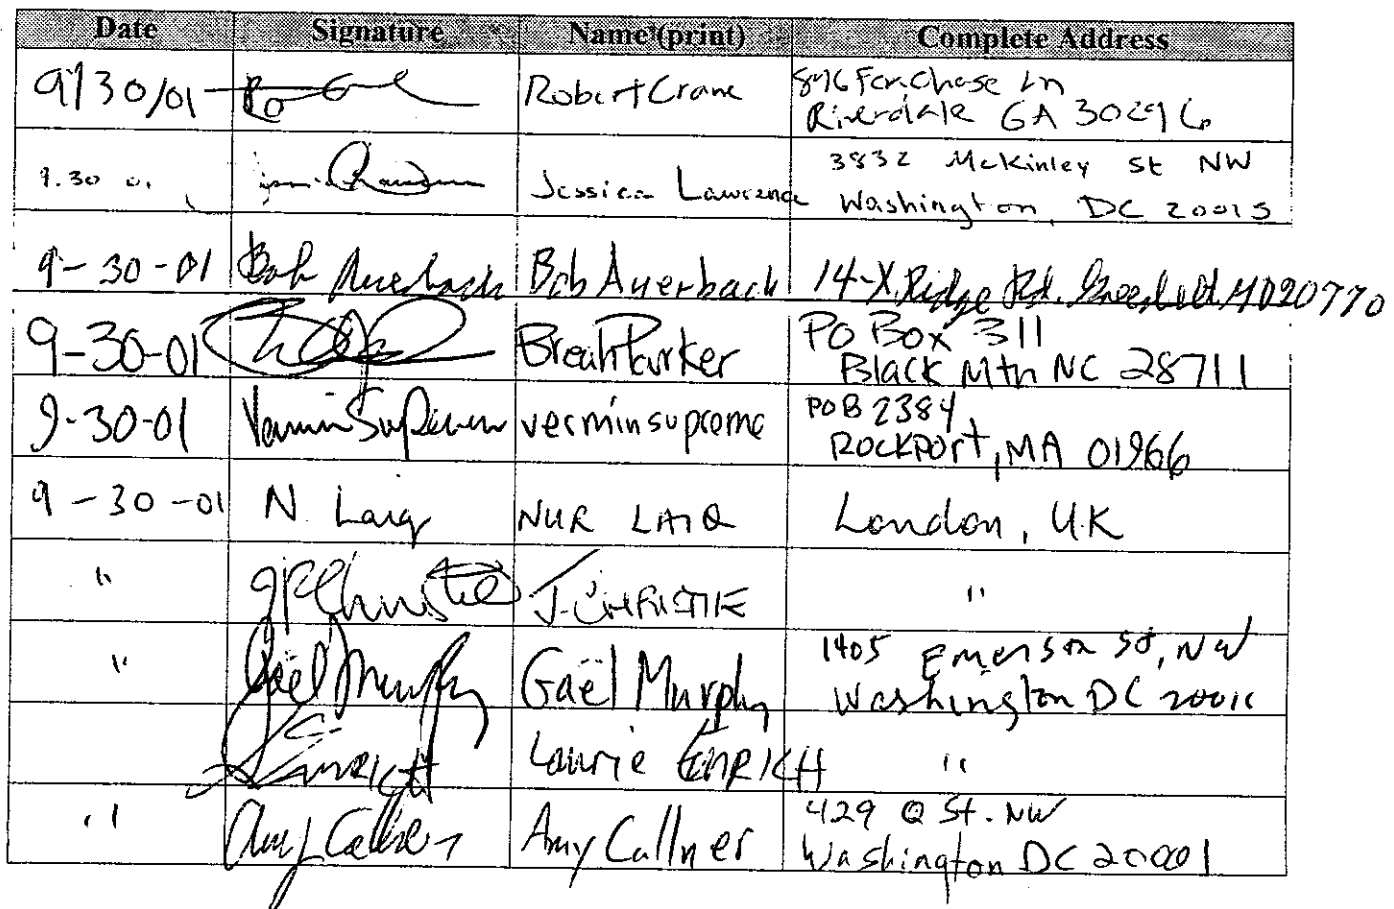 Date Signature Name (print) Complete Address
9/30/01 Robert Crane 896 Fox Chase Ln
Riverdale GA 30296
9.30 01 Jessica Lawrence 3832 McKinley St NW
Washington, DC 20015
9-30-01 Bob Auerbach Bob Auerbach 14-X Ridge Rd. Greenbelt MD 20770
9-30-01 Parker PO Box 311
Black Mtn NC 28711
9-30-01 Vermin Supreme verminsupreme POB 2384
ROCKPORT, MA 01966
9-30-01 N. Laiq NUR LAIQ London, UK
" JPChristie J. CHRISTIE "
" Gaël Murphy Gaël Murphy 1405 Emerson St, NW
Washington DC 20011
Laurie "
" Amy Callner Amy Callner 429 Q St. NW
Washington DC 20001